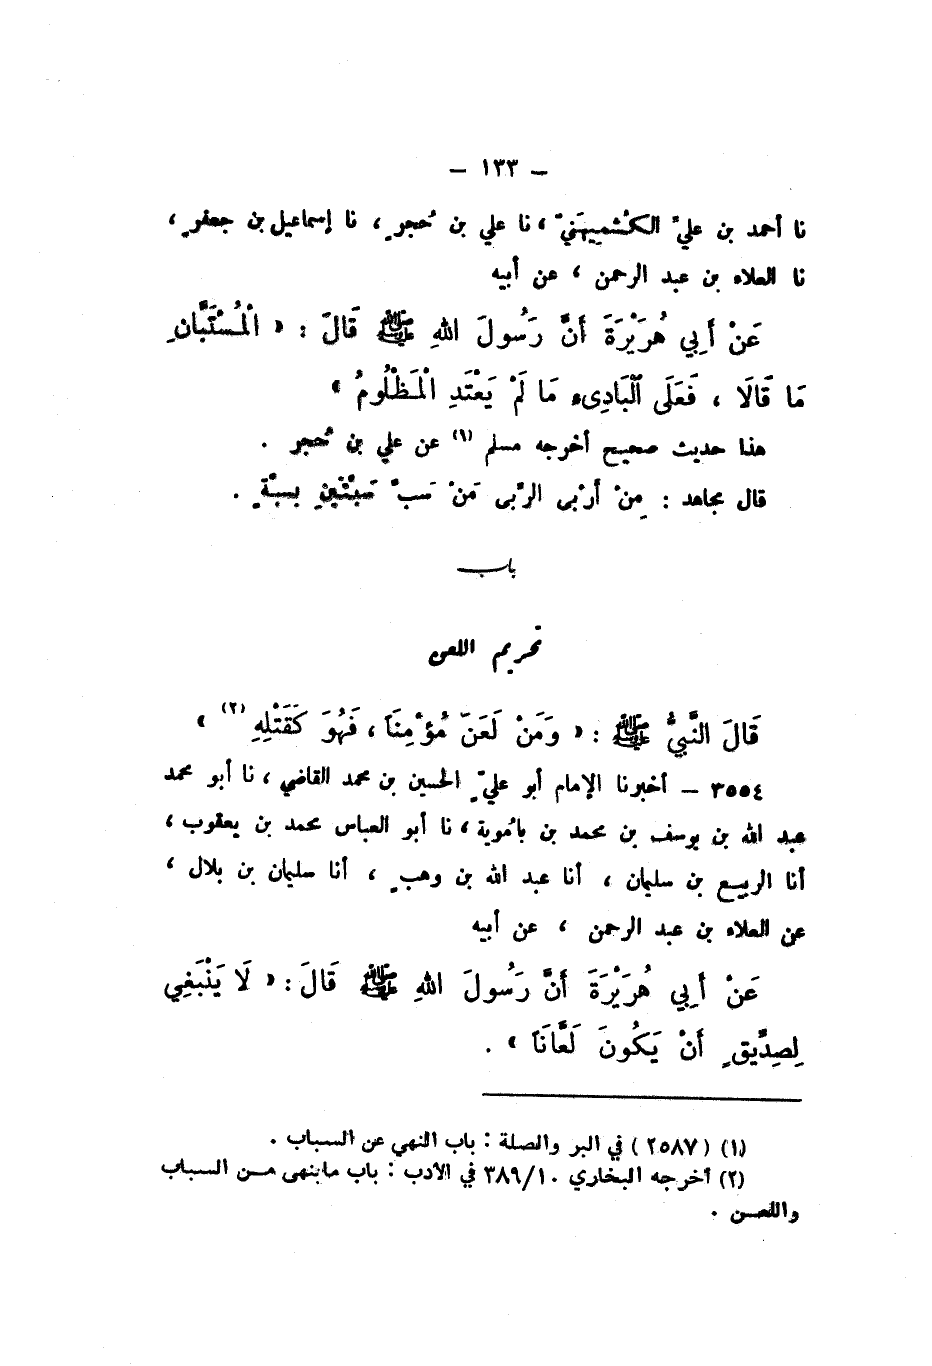 – ١٣٣ –
نا أحمد بن عليّ الكُشمِيهَنيّ ، نا علي بن حُجرٍ ، نا إسماعيل بن جعفرٍ ،
نا العلاء بن عبد الرحمن ، عن أبيه
عَنْ أَبِي هُرَيْرَةَ أَنَّ رَسُولَ اللهِ ﷺ قَالَ : « الْمُسْتَبَّانِ
مَا قَالَا ، فَعَلَى الْبَادِىءِ مَا لَمْ يَعْتَدِ الْمَظْلُومُ »
هذا حديث صحيح أخرجه مسلم (١) عن علي بن حُجر .
قال مجاهد : مِنْ أَرْبى الرّبى مَنْ سَبّ سَبّتْينِ بِسبّةٍ .
باب
تحريم اللعن
قَالَ النَّبِيُّ ﷺ : « وَمَنْ لَعَنَ مُؤْمِنَاً ، فَهُوَ كَقَتْلِهِ (٢) »
٣٥٥٤ – أخبرنا الإمام أبو عليّ الحسين بن محمد القاضي ، نا أبو محمد
عبد الله بن يوسف بن محمد بن بامُوية ، نا أبو العباس محمد بن يعقوب ،
أنا الربيع بن سليمان ، أنا عبد الله بن وهبٍ ، أنا سليمان بن بلال ،
عن العلاء بن عبد الرحمن ، عن أبيه
عَنْ أَبِي هُرَيْرَةَ أَنَّ رَسُولَ اللهِ ﷺ قَالَ : « لَا يَنْبَغِي
لِصِدِّيقٍ أَنْ يَكُونَ لَعَّانَاً » .
(١) (٢٥٨٧) في البر والصلة : باب النهي عن السباب .
(٢) أخرجه البخاري ٣٨٩/١٠ في الأدب : باب ماينهى من السباب
واللعن .